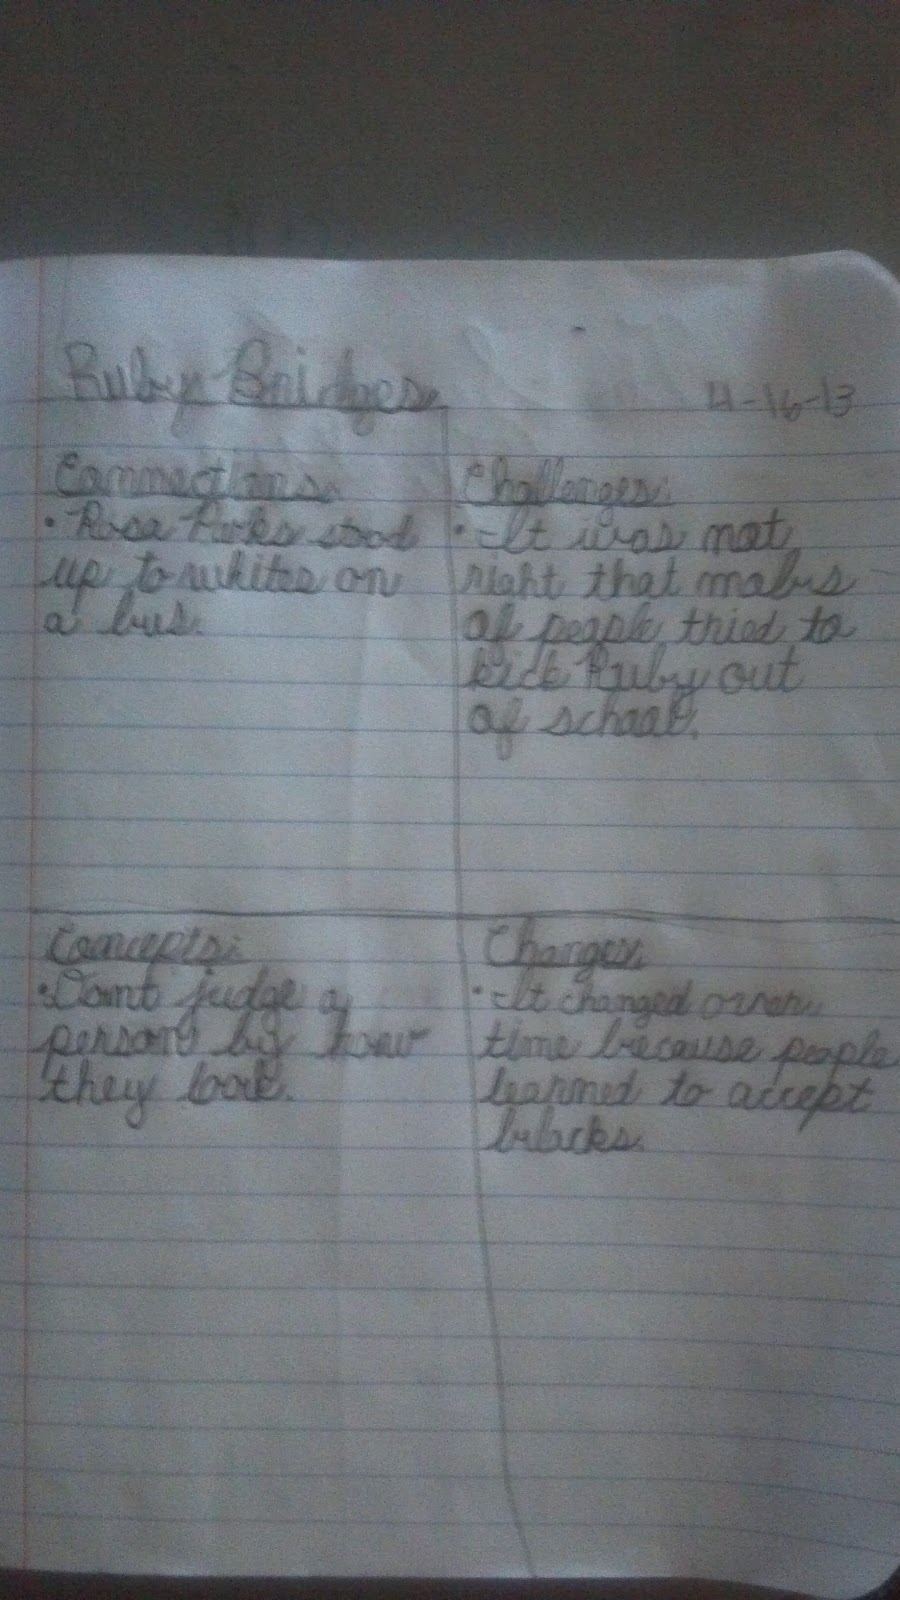 Ruby Bridges
4-16-13
Connections:
• Rosa Parks stood
up to whites on
a bus.
Challenges:
• It was not
right that mobs
of people tried to
kick Ruby out
of school.
Concepts:
• Dont judge a
person by how
they look.
Changes
• It changed over
time because people
learned to accept
blacks.